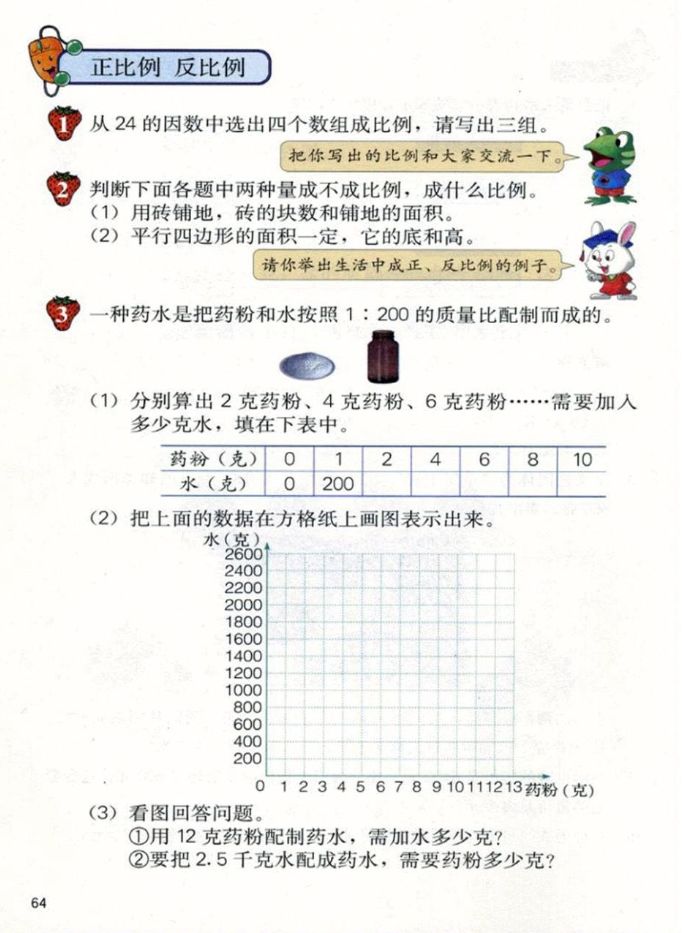 正比例 反比例
1 从 24 的因数中选出四个数组成比例，请写出三组。
把你写出的比例和大家交流一下。
2 判断下面各题中两种量成不成比例，成什么比例。
（1）用砖铺地，砖的块数和铺地的面积。
（2）平行四边形的面积一定，它的底和高。
请你举出生活中成正、反比例的例子。
3 一种药水是把药粉和水按照 1∶200 的质量比配制而成的。
（1）分别算出 2 克药粉、4 克药粉、6 克药粉……需要加入
多少克水，填在下表中。
药粉（克） 0 1 2 4 6 8 10
水（克） 0 200
（2）把上面的数据在方格纸上画图表示出来。
水（克）
2600
2400
2200
2000
1800
1600
1400
1200
1000
800
600
400
200
0 1 2 3 4 5 6 7 8 9 10 11 12 13 药粉（克）
（3）看图回答问题。
①用 12 克药粉配制药水，需加水多少克？
②要把 2.5 千克水配成药水，需要药粉多少克？
64